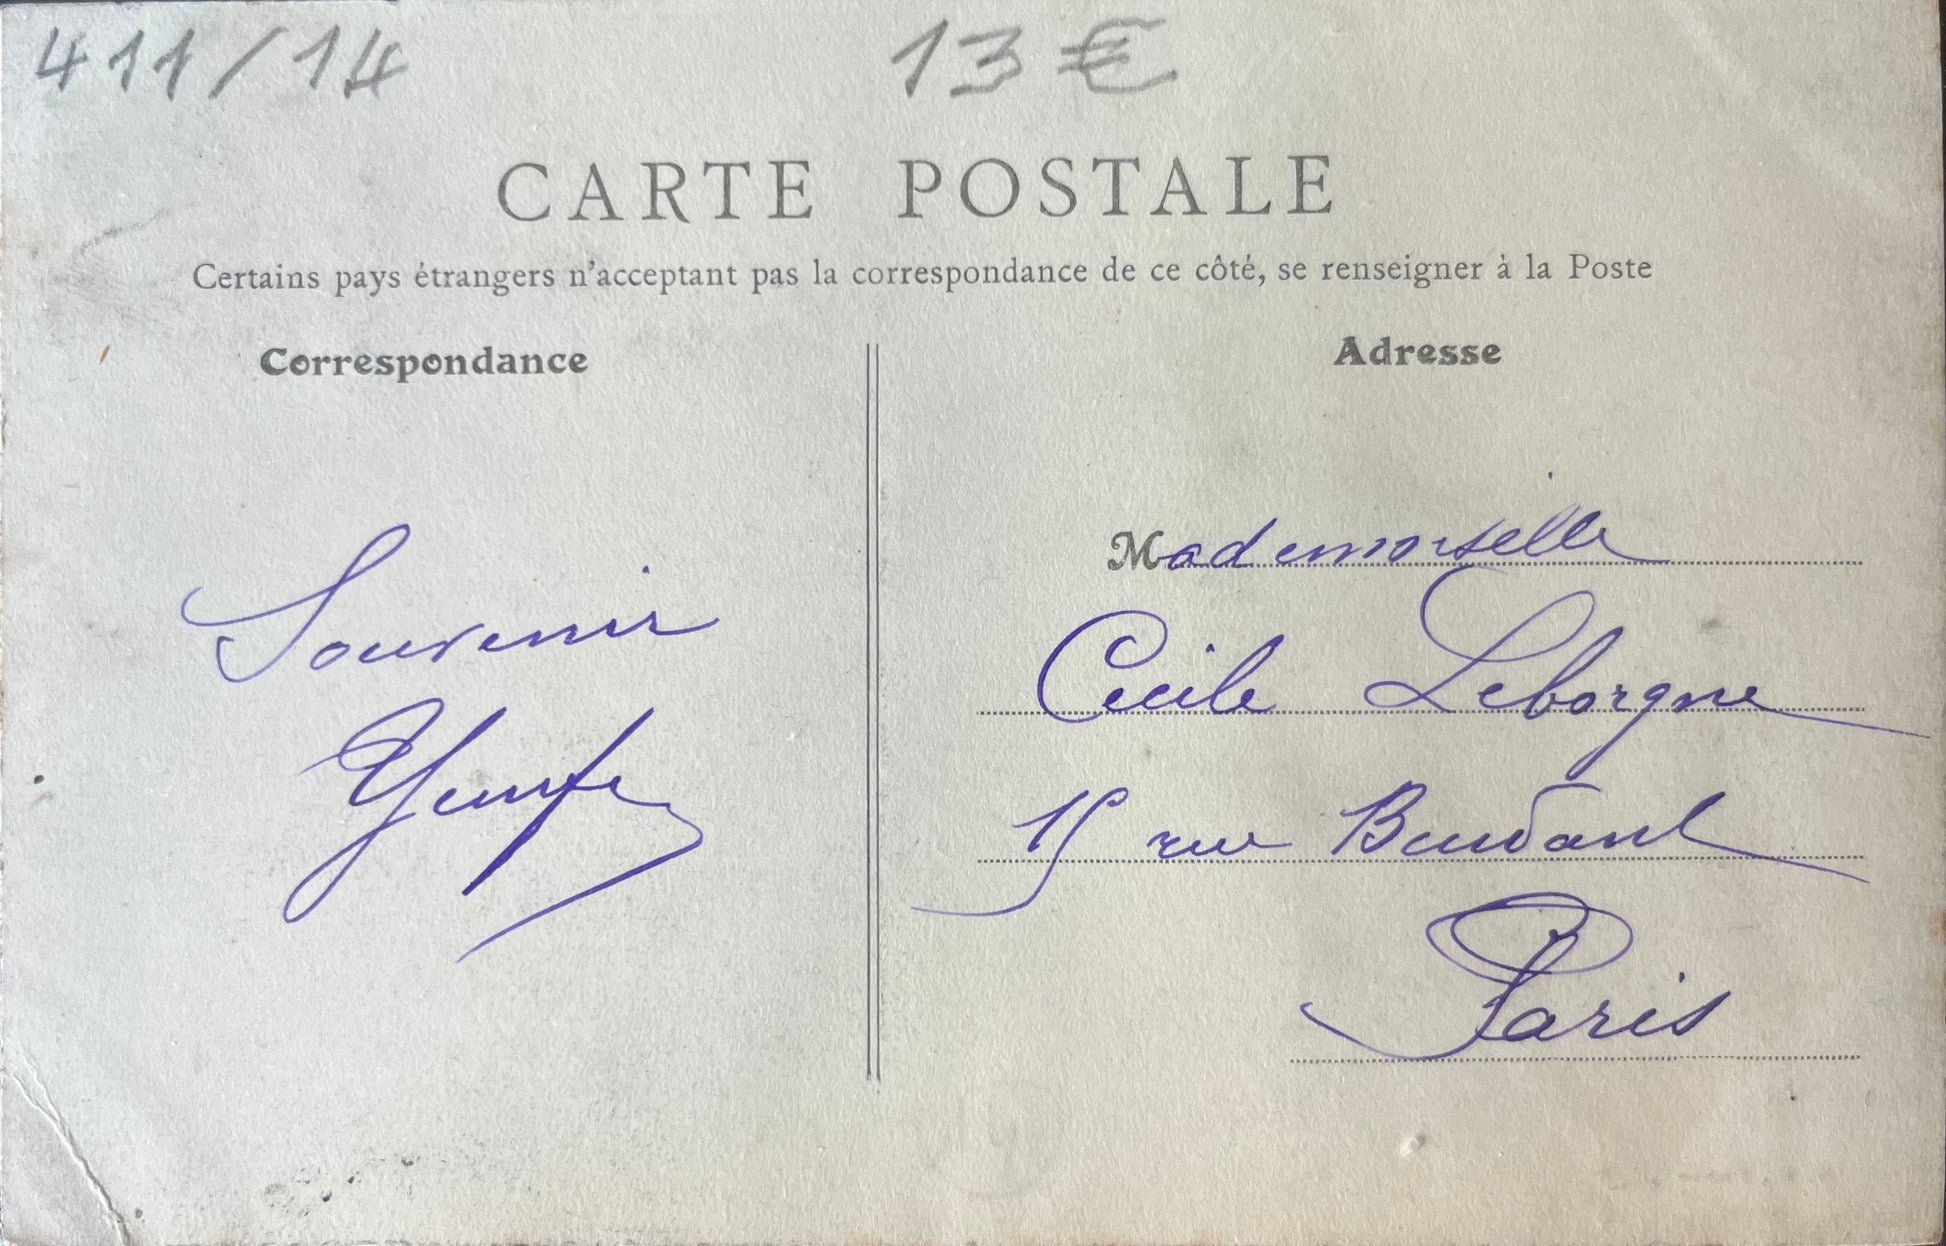 411/14 13€
CARTE POSTALE
Certains pays étrangers n'acceptant pas la correspondance de ce côté, se renseigner à la Poste
Correspondance
Adresse
Souvenir
Mademoiselle
Cecile Leborgne
15 rue
Paris